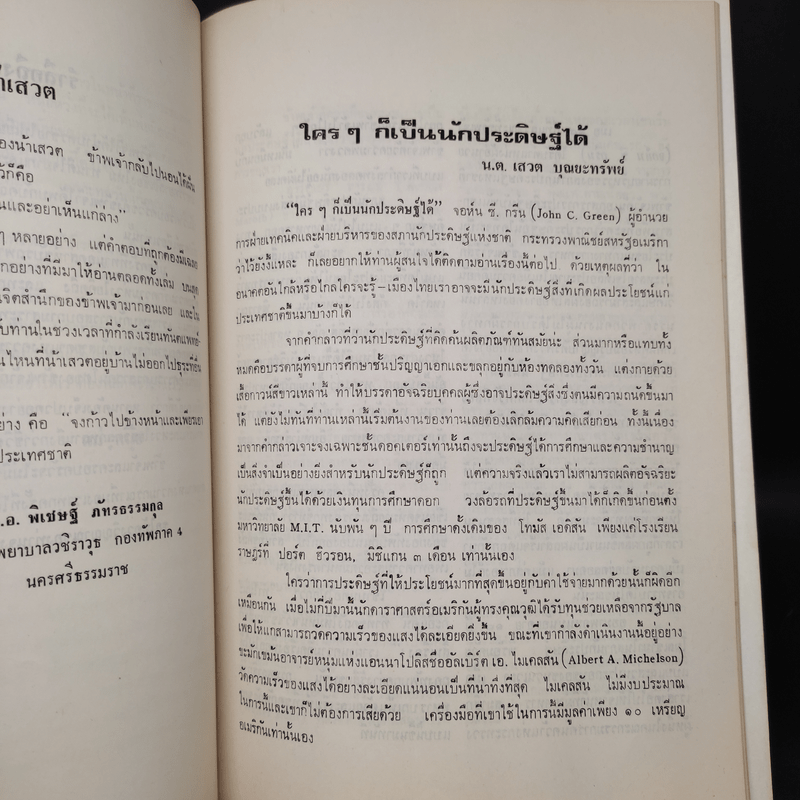 ้าเสวต
องน้าเสวต ข้าพเจ้ากลับไปนอนได้
ว้ก็คือ
นและอย่าเห็นแก่ล่าง”
ๆ หลายอย่าง แต่คำตอบที่ถูกต้องมีเฉพาะ
กอย่างที่มีมาให้อ่านตลอดทั้งเล่ม
เจิตสำนึกของข้าพเจ้ามาก่อนเลย และใน
ับท่านในช่วงเวลาที่กำลังเรียนทันตแพทย์-
นไหนที่น้าเสวตอยู่บ้านไม่ออกไปธุระที่อื่น
อย่าง คือ “จงก้าวไปข้างหน้าและเพียรเอา
ประเทศชาติ
.อ. พิเชษฐ์ ภัทรธรรมกุล
พยาบาลวชิราวุธ กองทัพภาค 4
นครศรีธรรมราช
ใคร ๆ ก็เป็นนักประดิษฐ์ได้
น.ต. เสวต บุณยะทรัพย์
“ใคร ๆ ก็เป็นนักประดิษฐ์ได้” จอห์น ซี. กรีน (John C. Green) ผู้อำนวย
การฝ่ายเทคนิคและฝ่ายบริหารของสภานักประดิษฐ์แห่งชาติ กระทรวงพาณิชย์สหรัฐอเมริกา
ว่าไว้ยังงี้แหละ ก็เลยอยากให้ท่านผู้สนใจได้ติดตามอ่านเรื่องนี้ต่อไป ด้วยเหตุผลที่ว่า ใน
อนาคตอันใกล้หรือไกลใครจะรู้-เมืองไทยเราอาจจะมีนักประดิษฐ์สิ่งที่เกิดผลประโยชน์แก่
ประเทศชาติขึ้นมาบ้างก็ได้
จากคำกล่าวที่ว่านักประดิษฐ์ที่คิดค้นผลิตภัณฑ์ทันสมัยน่ะ ส่วนมากหรือแทบทั้ง
หมดคือบรรดาผู้ที่จบการศึกษาชั้นปริญญาเอกและขลุกอยู่กับห้องทดลองทั้งวัน แต่งกายด้วย
เสื้อกาวน์สีขาวเหล่านี้ ทำให้บรรดาอัจฉริยบุคคลผู้ซึ่งอาจประดิษฐ์สิ่งซึ่งตนมีความถนัดขึ้นมา
ได้ แต่ยังไม่ทันที่ท่านเหล่านี้เริ่มต้นงานของท่านเลยต้องเลิกล้มความคิดเสียก่อน ทั้งนี้เนื่อง
มาจากคำกล่าวเจาะจงเฉพาะชั้นดอคเตอร์เท่านั้นถึงจะประดิษฐ์ได้การศึกษาและความชำนาญ
เป็นสิ่งจำเป็นอย่างยิ่งสำหรับนักประดิษฐ์ก็ถูก แต่ความจริงแล้วเราไม่สามารถผลิตอัจฉริยะ
นักประดิษฐ์ขึ้นได้ด้วยเงินทุนการศึกษาดอก วงล้อรถที่ประดิษฐ์ขึ้นมาได้ก็เกิดขึ้นก่อนตั้ง
มหาวิทยาลัย M.I.T. นับพัน ๆ ปี การศึกษาดั้งเดิมของ โทมัส เอดิสัน เพียงแค่โรงเรียน
ราษฎร์ที่ ปอร์ต ฮิวรอน, มิชิแกน ๓ เดือน เท่านั้นเอง
ใครว่าการประดิษฐ์ที่ให้ประโยชน์มากที่สุดขึ้นอยู่กับค่าใช้จ่ายมากด้วยนั้นก็ผิดอีก
เหมือนกัน เมื่อไม่กี่ปีมานี้นักดาราศาสตร์อเมริกันผู้ทรงคุณวุฒิได้รับทุนช่วยเหลือจากรัฐบาล
เพื่อให้แกสามารถวัดความเร็วของแสงได้ละเอียดยิ่งขึ้น ขณะที่เขากำลังดำเนินงานนี้อยู่อย่าง
ขะมักเขม้นอาจารย์หนุ่มแห่งแอนนาโปลิสชื่ออัลเบิร์ต เอ. ไมเคลสัน (Albert A. Michelson)
วัดความเร็วของแสงได้อย่างละเอียดแน่นอนเป็นที่น่าทึ่งที่สุด ไมเคลสัน ไม่มีงบประมาณ
ในการนี้และเขาก็ไม่ต้องการเสียด้วย เครื่องมือที่เขาใช้ในการนี้มีมูลค่าเพียง ๑๐ เหรียญ
อเมริกันเท่านั้นเอง